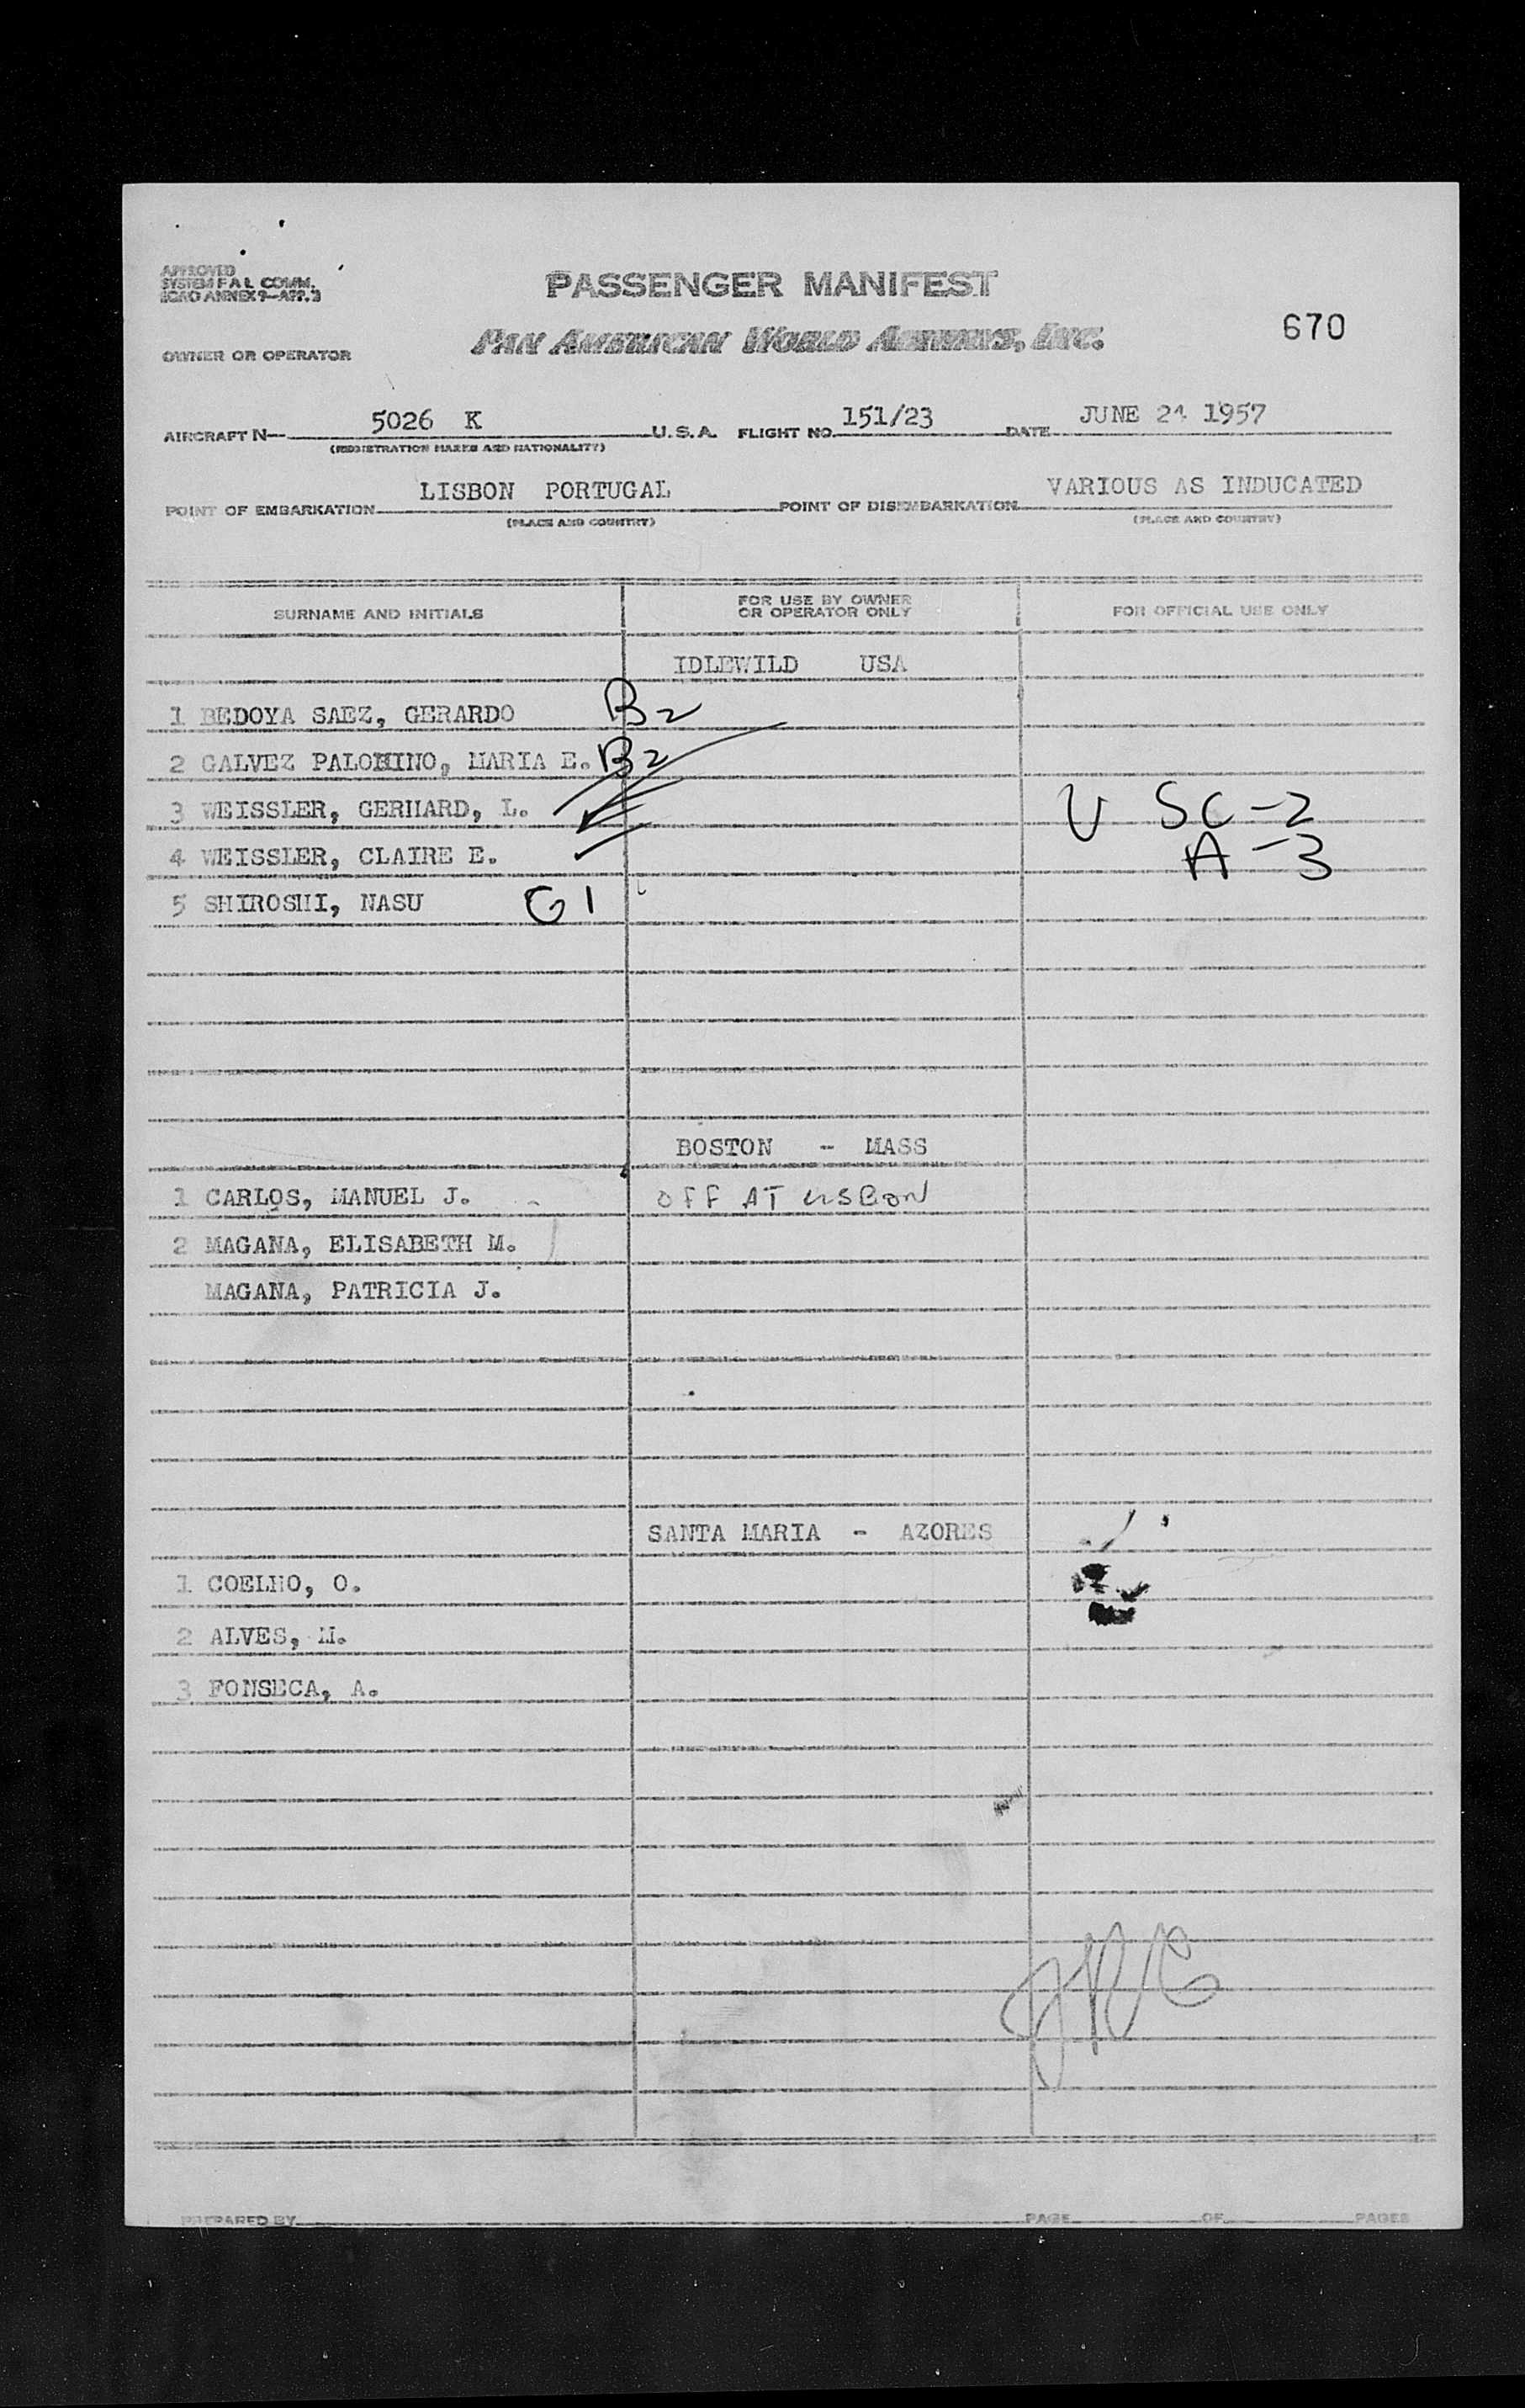 APPROVED
SYSTEM F A L COMM.
ICAO ANNEX 9—APP. 3
PASSENGER MANIFEST
PAN AMERICAN WORLD AIRWAYS, INC.
670
OWNER OR OPERATOR
AIRCRAFT N— 5026 K U. S. A. FLIGHT NO. 151/23 DATE JUNE 24 1957
(REGISTRATION MARKS AND NATIONALITY)
POINT OF EMBARKATION LISBON PORTUGAL POINT OF DISEMBARKATION VARIOUS AS INDUCATED
(PLACE AND COUNTRY) (PLACE AND COUNTRY)
SURNAME AND INITIALS FOR USE BY OWNER OR OPERATOR ONLY FOR OFFICIAL USE ONLY
IDLEWILD USA
1 BEDOYA SAEZ, GERARDO B2
2 GALVEZ PALOMINO, MARIA E. B2
3 WEISSLER, GERHARD, L. U SC-2
4 WEISSLER, CLAIRE E. A-3
5 SHIROSHI, NASU G1
BOSTON - MASS
1 CARLOS, MANUEL J. OFF AT LISBON
2 MAGANA, ELISABETH M.
MAGANA, PATRICIA J.
SANTA MARIA - AZORES
1 COELHO, O.
2 ALVES, M.
3 FONSECA, A.
PREPARED BY PAGE OF PAGES